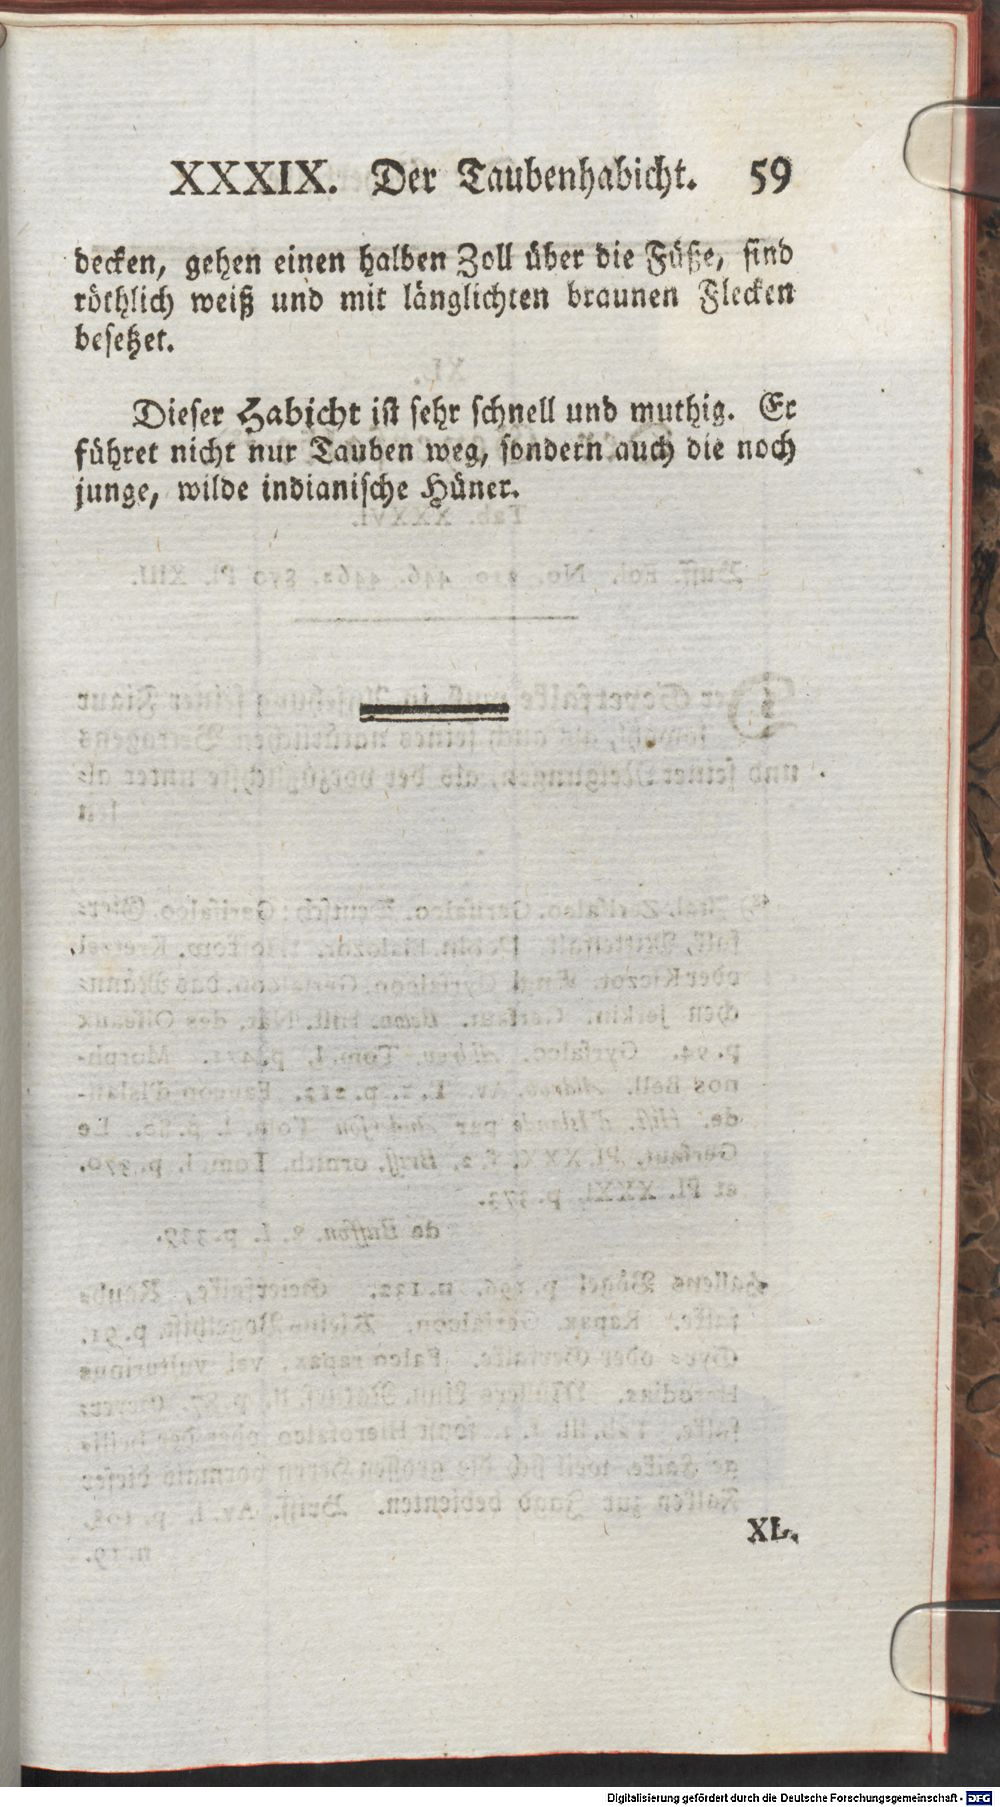 XXXIX. Der Taubenhabicht. 59
decken, gehen einen halben Zoll über die Füße, sind
röthlich weiß und mit länglichten braunen Flecken
besetzet.
Dieser Habicht ist sehr schnell und muthig. Er
führet nicht nur Tauben weg, sondern auch die noch
junge, wilde indianische Hüner.
XL.
Digitalisierung gefördert durch die Deutsche Forschungsgemeinschaft - DFG